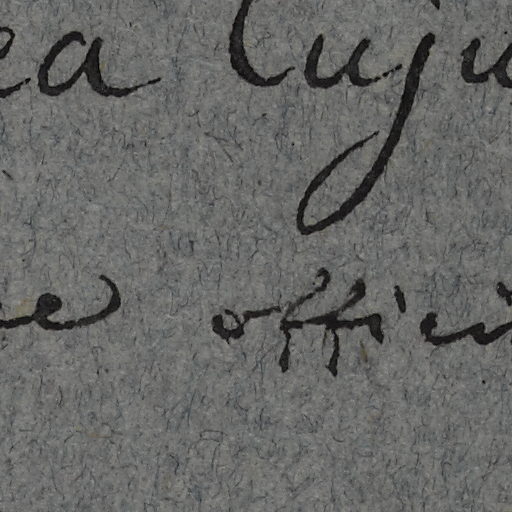 ea Cuju
e offici